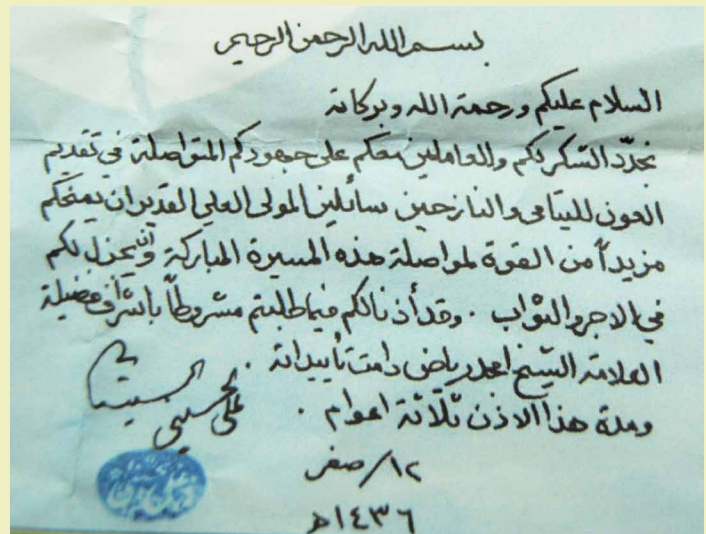 بسم الله الرحمن الرحيم
السلام عليكم ورحمة الله وبركاته
نجدّد الشكر لكم وللعاملين معكم على جهودكم المتواصلة في تقديم
العون لليتامى والنازحين سائلين المولى العلي القدير ان يمنحكم
مزيداً من القوة لمواصلة هذه المسيرة المباركة وأن يجزل لكم
في الاجر والثواب . وقد أذنا لكم فيما طلبتم مشروطاً باشراف فضيلة
العلامة الشيخ احمد رياض دامت تأييداته .
ومدة هذا الاذن ثلاثة اعوام .
علي الحسيني السيستاني
١٢/صفر
١٤٣٦ه